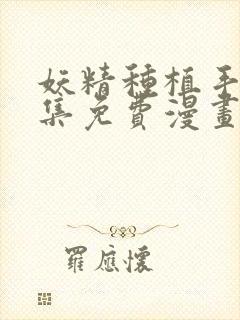 妖精種植手
集免費漫畫
羅應懷